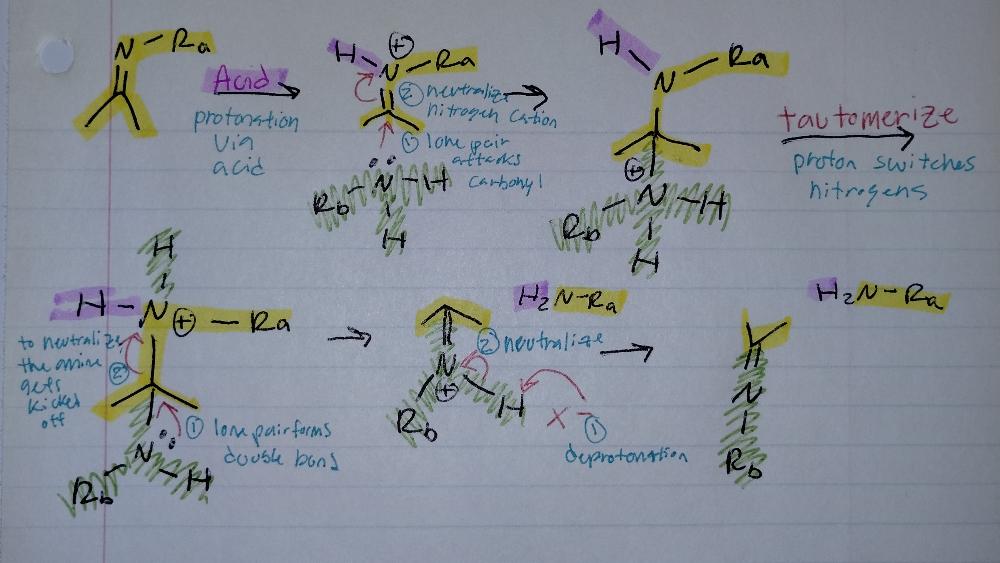 N - Ra
Acid
protonation
via
acid
H
N
⊕
- Ra
② neutralize
nitrogen cation
① lone pair
attacks
carbonyl
Rb - N - H
H
H
N - Ra
⊕
Rb - N - H
H
tautomerize
proton switches
nitrogens
H
H - N ⊕ - Ra
to neutralize,
the amine
gets
kicked
off
②
① lone pair forms
double bond
N
Rb
H
H2N - Ra
② neutralize
N
⊕
Rb
H
X
①
deprotonation
H2N - Ra
N
Rb